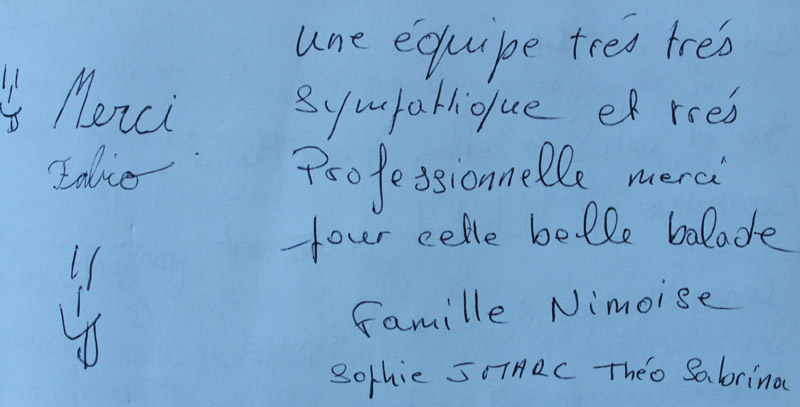 Merci
Fabio
une équipe trés trés
sympathique et trés
Professionnelle merci
pour cette belle balade
Famille Nimoise
Sophie JMARC Théo Sabrina